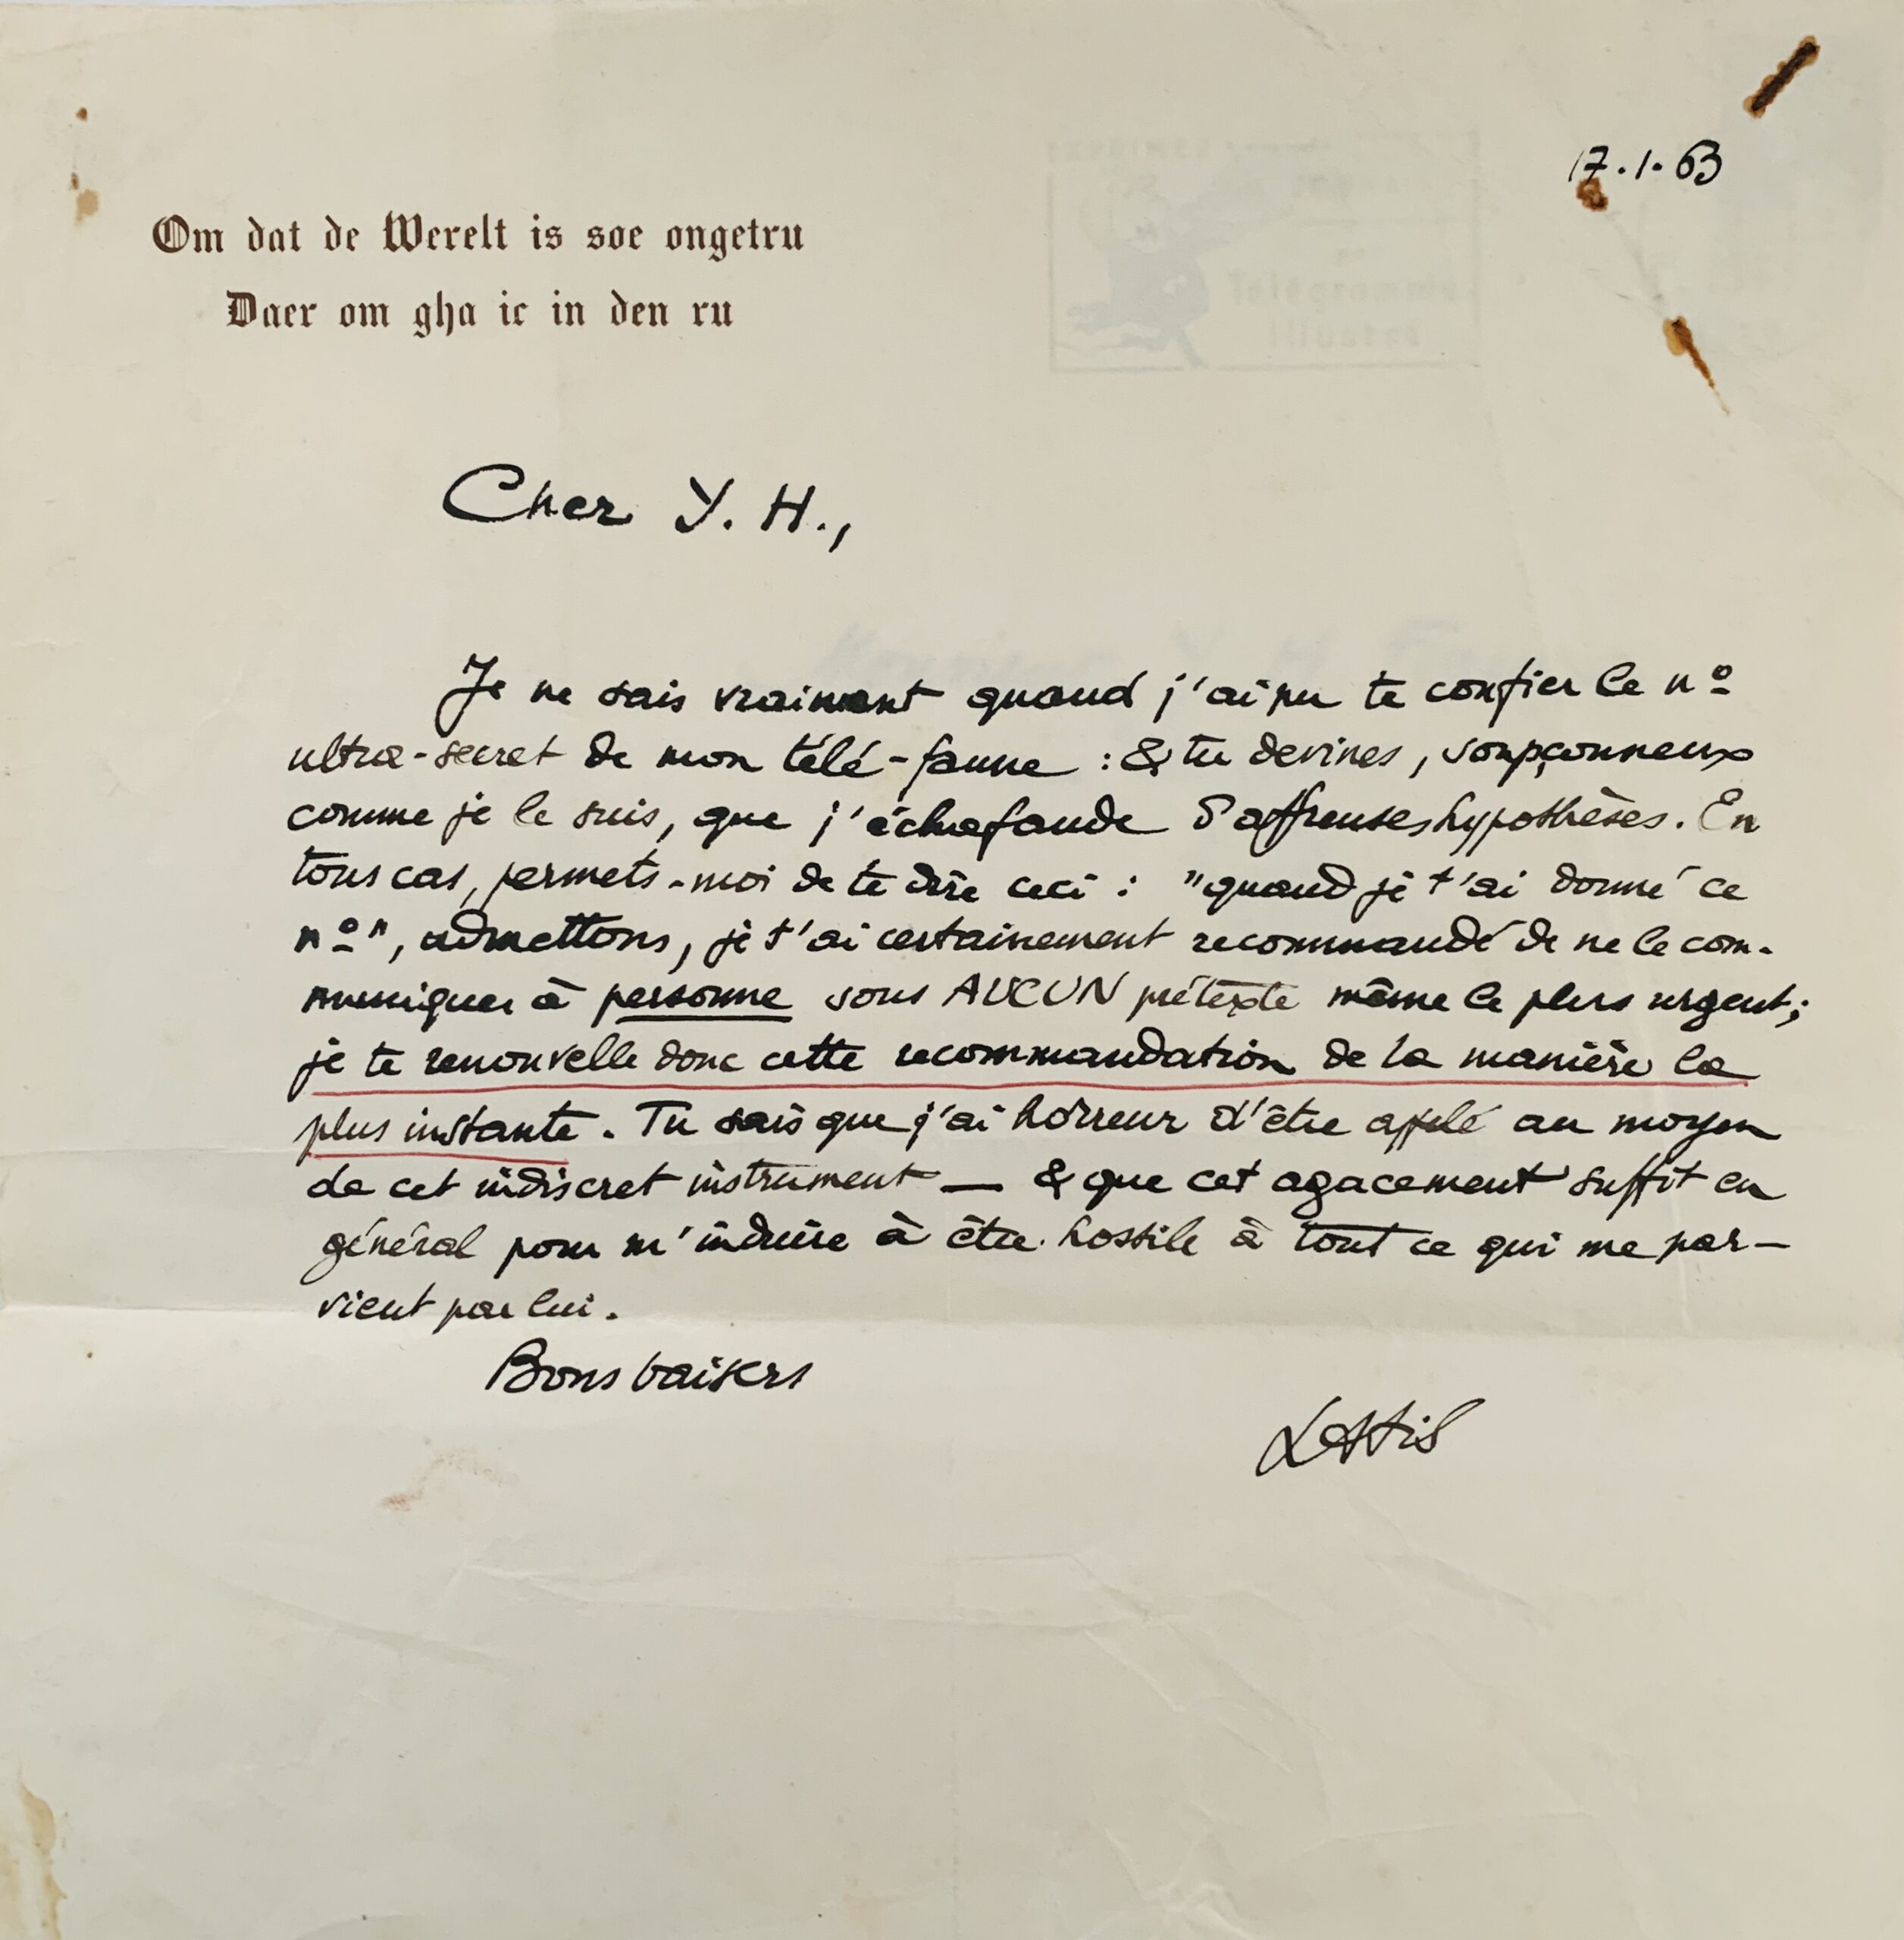 17.1.63
Om dat de Werelt is soe ongetru
Daer om gha ic in den ru
Télégramme
Illustré
Cher Y. H.,
Je ne sais vraiment quand j'ai pu te confier le nº
ultra-secret de mon télé-faune : & tu devines, soupçonneux
comme je le suis, que j'échafaude d'affreuses hypothèses. En
tous cas, permets-moi de te dire ceci : "quand je t'ai donné ce
nº", admettons, je t'ai certainement recommandé de ne le com-
muniquer à personne sous AUCUN prétexte même le plus urgent;
je te renouvelle donc cette recommandation de la manière la
plus instante. Tu sais que j'ai horreur d'être appelé au moyen
de cet indiscret instrument — & que cet agacement suffit en
général pour m'induire à être hostile à tout ce qui me par-
vient par lui.
Bons baisers
Lattis